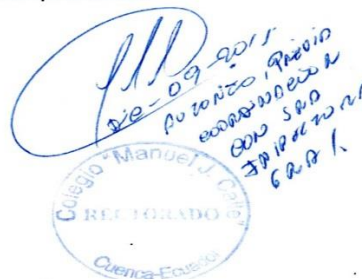 09-2015
AUTORIZO, PREVIA
COORDINACION
CON SRA
INSPECTORA
GRAL.
Colegio "Manuel J. Calle"
RECTORADO
Cuenca-Ecuador